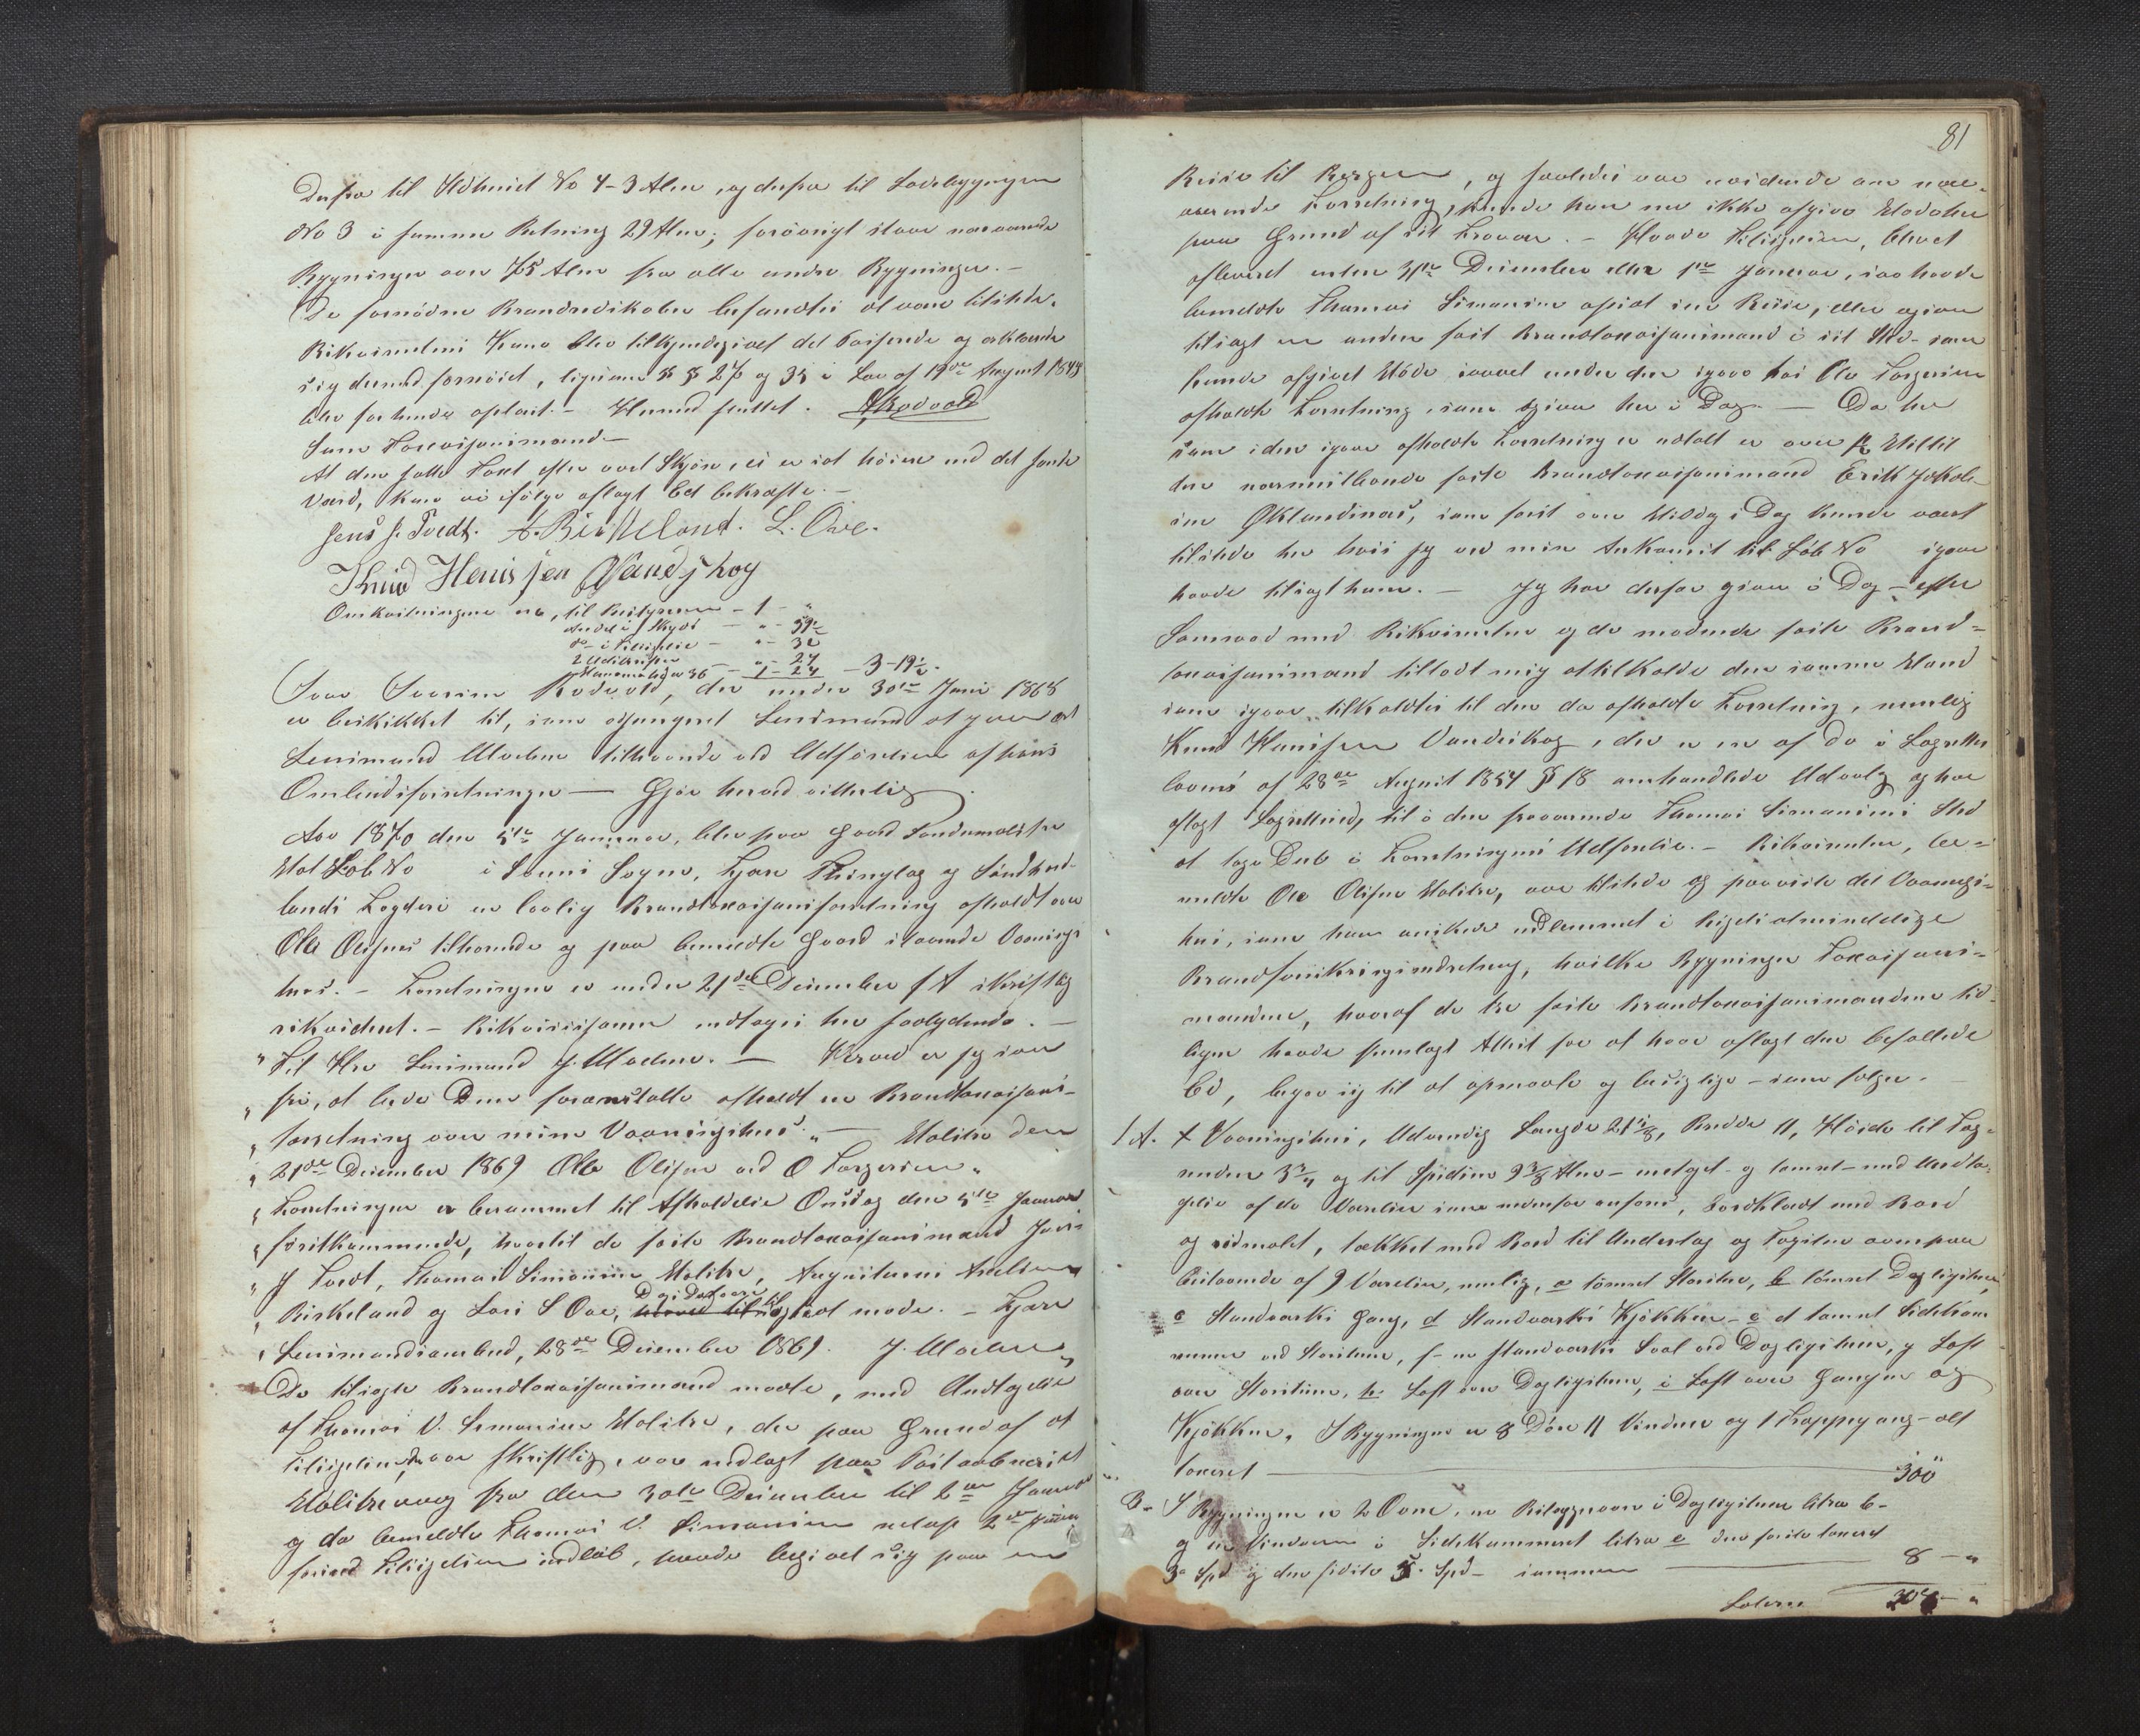 Derfra til Ildhuset No 4-3 Alen, og derfra til Ladebygningen
No 3 i samme Retning 29 Alen; forøvrigt ere nærværende
Bygninger over 75 Alen fra alle andre Bygninger. -
De fornødne Brandredskaber befandtes at være tilstede.
Rekvirentens Kone blev tilkjendegivet det Passerede og erklærede
sig dermed fornøiet, ligesom § § 27 og 35 i Lov af 19de August 1845
blev for hende oplæst. - Hermed sluttet. Rødvold
Som Taxasjonsmænd
At den satte Taxt efter vort Skjøn, ei er sat høiere end det sande
Værd, kan vi ifølge aflagt Ed bekræfte. -
Jens J. Tvedt. A. Birkeland. L. Ove.
Knud Hansen Vandskog
Omkostningerne ere, til Bestyreren - 1 - "
Andel i Skyds - " - 59½
do - i Tilsigelse - " - 32
2 Udskrifter - " - 24
Mændene à 36 - 1 - 24 - 3-19½.
Svor Sverrine Rødvold, der under 30te Juni 1868
er beskikket til, som adjungeret Lensmand at gaae
Lensmand Maclen tilhaande ved Udførelsen af hans
Ombudsforretninger - Gjør herved vitterlig
Aar 1870 den 5te Januar, blev paa Gaard
Mat Løb No i Sogn, Fjære Thinglag og Søndhord-
lands Fogderi en lovlig Brandtaxasjonsforretning afholdt over
Ole Olsens tilhørende og paa bemeldte Gaard staaende Vaanings-
huus. - Forretningen er under 21de December f A skriftlig
rekvireret. - Rekvisisjonen indtages her saalydende. -
" Til Hr Lensmand J. Maclen. - Herved er jeg saa
" fri, at bede Dem foranstalte afholdt en Brandtaxasjons-
" forretning over mine Vaaningshus. " - Holstre den
" 21de December 1869 Ole Olsen ved O Torgersen "
" Forretningen er berammet til Afholdelse Onsdag den 5te Januar
" førstkommende, hvortil de faste Brandtaxasjonsmænd Jens
" J Tvedt, Thomas Simonsen Holstre,
" Birkeland og Lars L Ove, tilsiges at møde. - Fjære
" Lensmandsombud, 28de December 1869. J. Maclen "
De tilsagte Brandtaxasjonsmænd mødte, med Undtagelse
af Thomas V. Simonsen Holstre, der paa Grund af at
Tilsigelsen, der var skriftlig, var nedlagt paa Postaabneriet
Holstrevaag fra den 30te December til 2den Januar
og da bemeldte Thomas V. Simonsen 2den
førend Tilsigelsen indløb, havde begivet sig paa en
81
Reise til Bergen, og saaledes var uvidende om nær-
værende Forretning, kunde han nu ikke afgive Møde her
paa Grund af sit Fravær. - Havde Tilsigelsen, blevet
afleveret enten 31te December eller 1ste Januar, saa havde
bemeldte Thomas Simonsen opsat sin Reise, eller ogsaa
tilsagt en anden fast Brandtaxasjonsmand i sit Sted - som
kunde afgivet Møde saavel under den igaar hos Ole Torgersen
afholdte Forretning, som ogsaa her i Dag. - Da her
som i den igaar afholdte Forretning er udtalt er over ½ Miil til
den nærmestboende faste Brandtaxasjonsmand Erik Jakob-
sen Øklandsnæs, som først over Middag i Dag kunde været
tilstede her hvis jeg ved min Ankomst til Løb No igaar
havde tilsagt ham. - Jeg har derfor ogsaa i Dag - efter
Samraad med Rekvirenten og de mødende faste Brand-
taxasjonsmænd tilladt mig at tilkalde den samme Mand
som igaar tilkaldtes til den da afholdte Forretning, nemlig
Knud Hansen Vandskog, der er en af de i Lagrettes
lovens af 28de August 1854 § 18 omhandlede Udvalg og har
aflagt Lagretteed, til i den fraværende Thomas Simonsens Sted
at tage Del i Forretningens Udførelse. - Rekvirenten, be-
meldte Ole Olsen Holstre, var tilstede og paaviste det Vaanings-
hus, som han ønskede indlemmet i Rigets almindelige
Brandforsikringsindretning, hvilke Bygninger Taxasjons-
mændene, hvoraf de tre faste Brandtaxasjonsmændene tid-
ligere havde fremlagt Attest for at have aflagt den befalede
Ed, begav sig til at opmaale og besigtige - som følger.
1 A. 1 Vaaningshus, Udvendig Længde 21⅛, Bredde 11, Høide til Tag-
enden 3¾ og til Spidsen 9⅜ Alen - - og tømret - med Undta-
gelse af de Værelser som nedenfor anføres, bordklædt med Bord
og rødmalet, tækket med Bord til Undertag og Tagsten ovenpaa
bestaaende af 9 Værelser, nemlig, a tømret Storstue, b tømret Dagligstue
c Standværks Gang, d Standværks Kjøkken - e et tømret Sidekam
mer ved Storstuen, f - en standværks Sval ved Dagligstuen, g Loft
over Storstuen, h. Loft over Dagligstuen, i Loft over Gangen og
Kjøkken. I Bygningen er 8 Døre 11 Vinduer og 1 Trappegang - alt
taxeret 300
B. I Bygningen er 2 Ovne, en Bilæggerovn i Dagligstuen litra b -
og en Vindovn i Sidekammeret litra e den første taxeret
3 Spd og den sidste 5 Spd - sammen 8 - "
Latere 308 - "